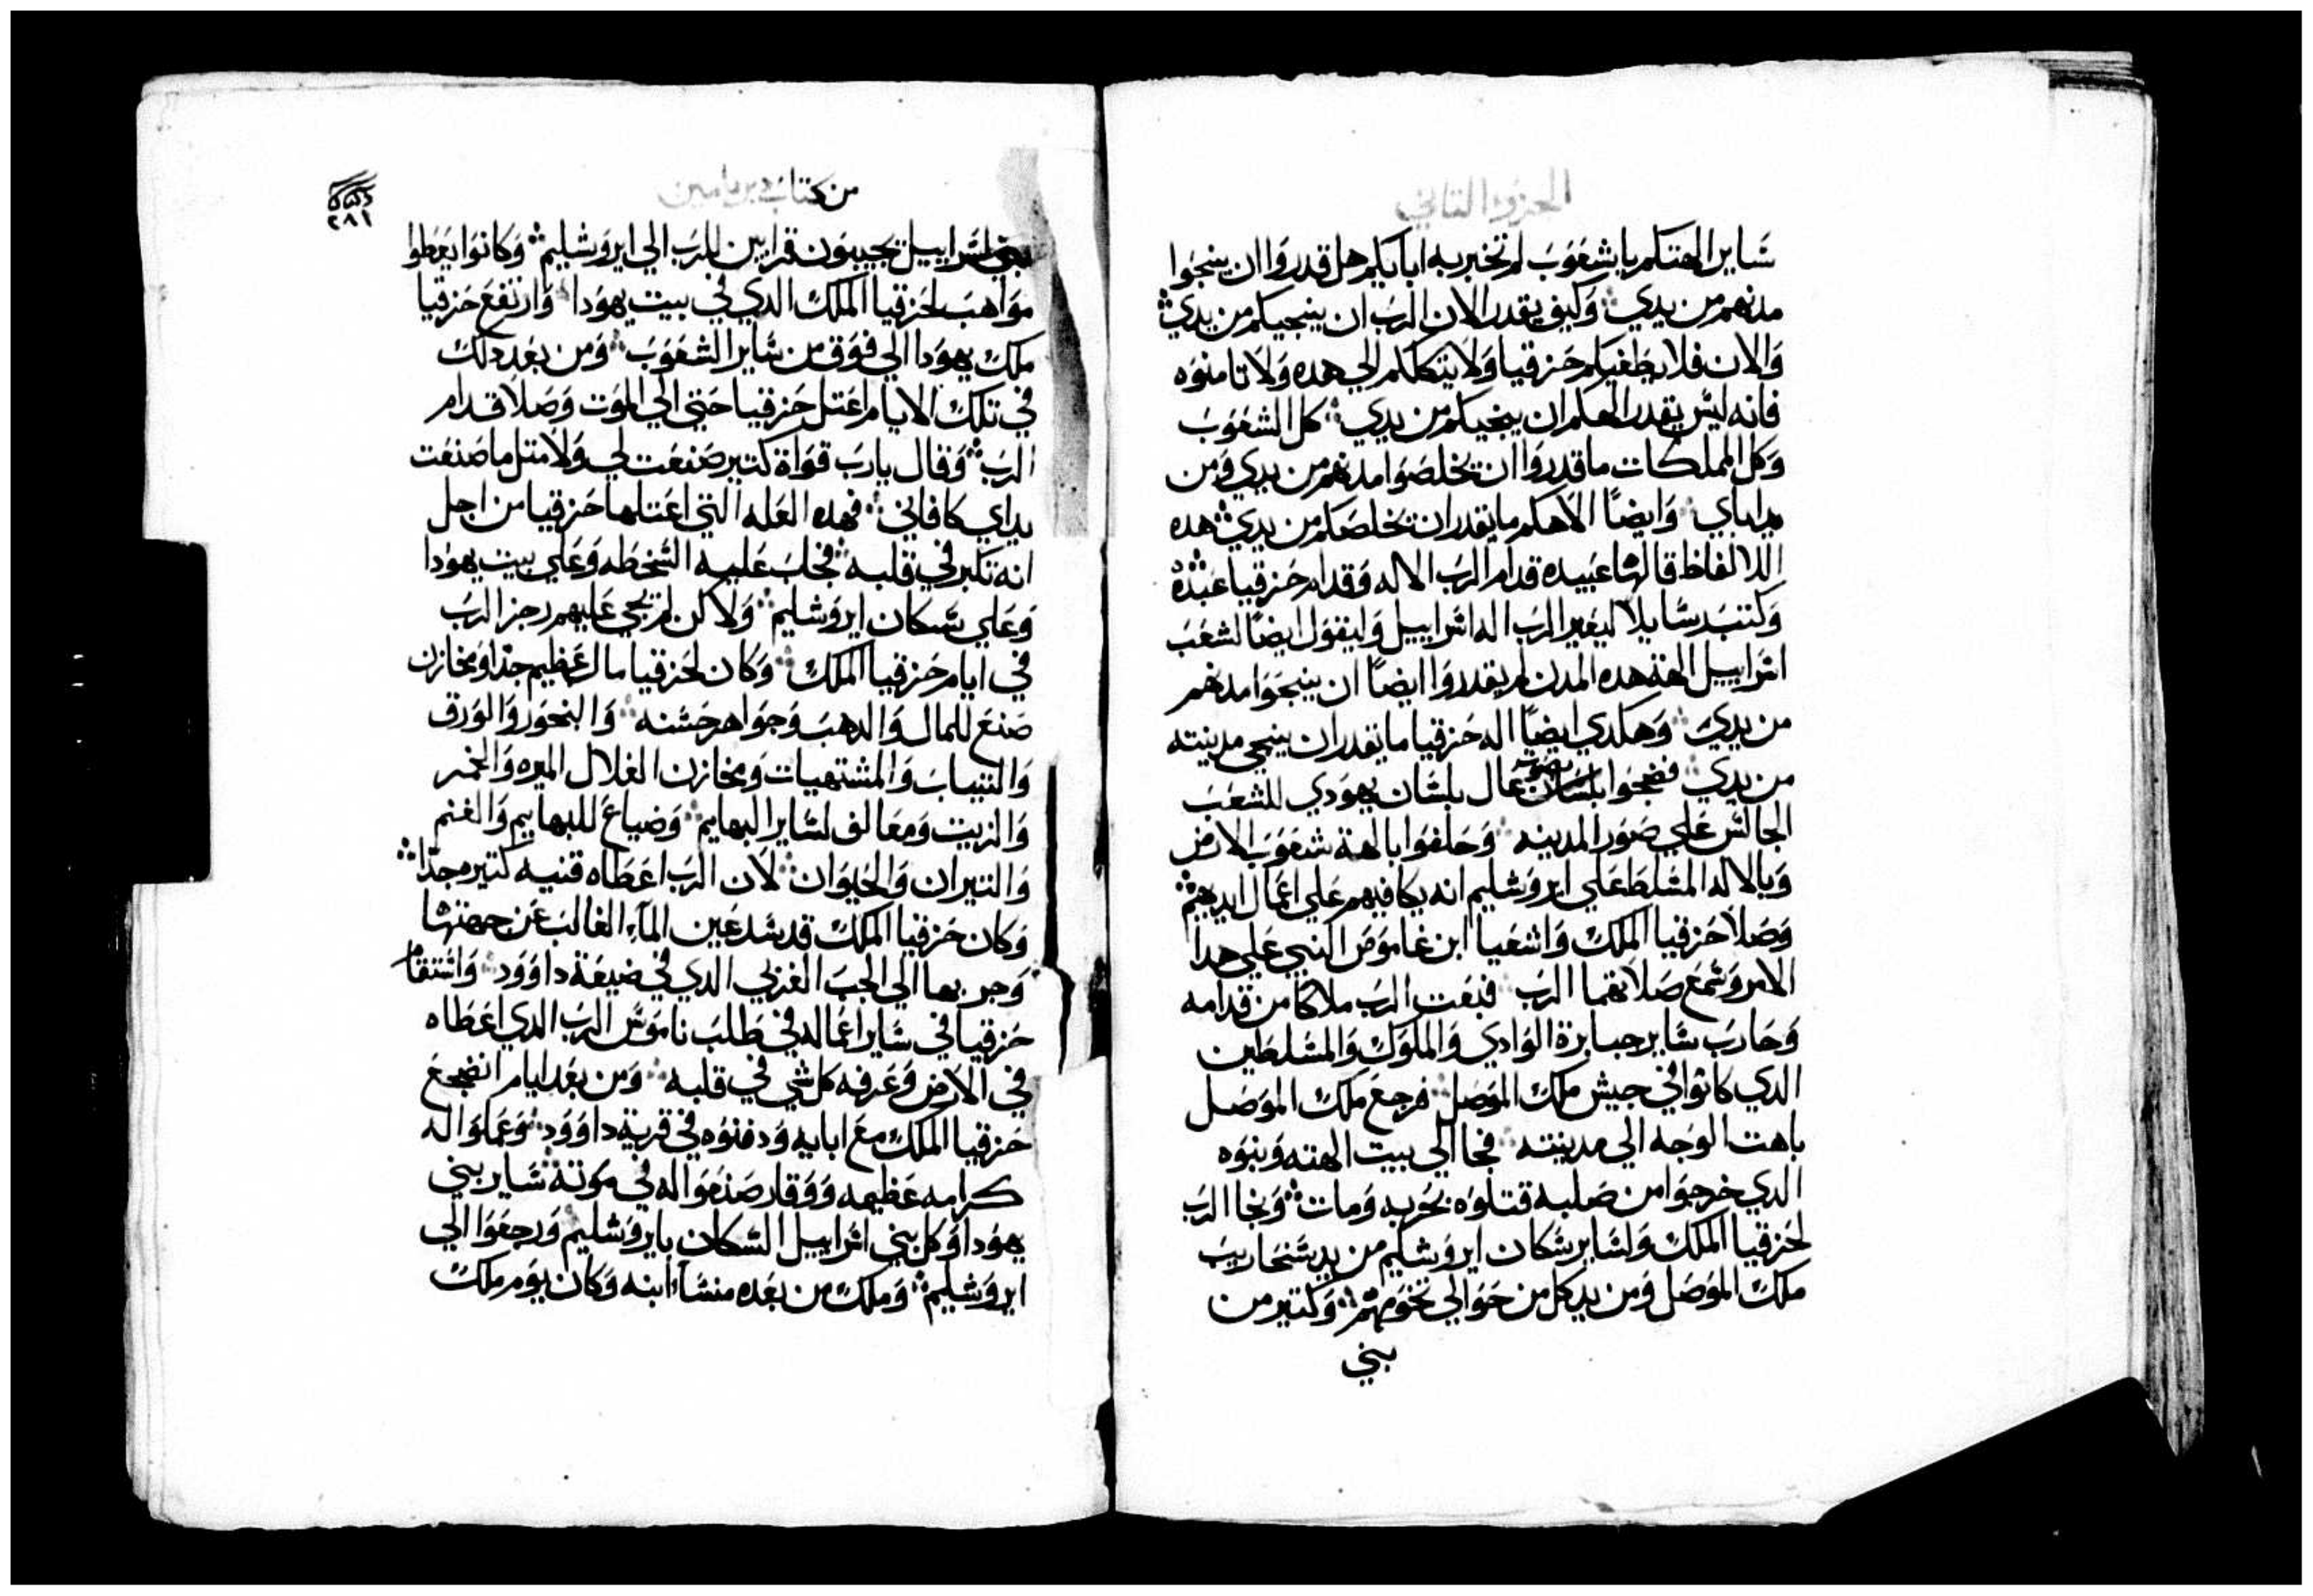 الجزو التاني
شاير الهتكم يا شعوب لم تخبر به ابايكم هل قدروا ان ينجوا
مدنهم من يدي وكيف يقدر الان الرب ان ينجيكم من يدي
والان فلا يطغيكم حزقيا ولا يتكلكم الي هده ولا تامنوه
فانه ليس يقدر الهكم ان ينجيكم من يدي كل الشعوب
وكل المملكات ما قدروا ان يخلصوا مدنهم من يدي ومن
يد اباي وايضًا الاهكم ما يقدر ان يخلصكم من يدي هده
اللالفاظ قالها عبيده قدام الرب الاله وقدام حزقيا عبده
وكتب رسايلا ليعير الرب اله اسراييل وليقول ايضًا لشعب
اسراييل الهة هده المدن لم يقدروا ايضًا ان ينجوا مدنهم
من يدي وهكدي ايضًا اله حزقيا ما يقدر ان ينجي مدينته
من يدي فضجوا بصوت عال بلسان يهودي للشعب
الجالس علي صور المدينه وحلفوا بالهة شعوب الارض
وبالاله المسلط علي ايروشليم انه يكافيهم علي اعمال ايديهم
وصلا حزقيا الملك واشعيا ابن غاموص النبي علي هدا
الامر وسمع صلاتهما الرب فبعت الرب ملاكا من قدامه
وحارب شاير جبابرة الوادي والملوك والمسلطين
الدي كانوا في جيش ملك الموصل فرجع ملك الموصل
باهت الوجه الي مدينته فجا الي بيت الهته وبنوه
الدي خرجوا من صلبه قتلوه بحربه ومات ونجا الرب
لحزقيا الملك ولشاير سكان ايروشليم من يد سنحاريب
ملك الموصل ومن يد كل من حوالي تخومهم وكتير من
بني
من كتاب دبريامين
٢٨١
بني اسراييل يجيبون قرابين للرب الي ايروشليم وكانوا يعطوا
مواهب لحزقيا الملك الدي في بيت يهودا وارتفع حزقيا
ملك يهودا الي فوق من شاير الشعوب ومن بعد دلك
في تلك الايام اعتل حزقيا حتي الي الموت وصلا قدام
الرب وقال يا رب قواة كتير صنعت لي ولا متل ما صنعت
يداي كافاني فهده العله التي اعتلها حزقيا من اجل
انه تكبر في قلبه فجلب عليه السخطه وعلي بيت يهودا
وعلي سكان ايروشليم ولاكن لم يجي عليهم رجز الرب
في ايام حزقيا الملك وكان لحزقيا مال عظيم جدًا ومخازن
صنع للمال والدهب وجواهر حسنه والبخور والورق
والتياب والمشتهيات ومخازن الغلال الميره والخمر
والزيت ومعالف لشاير البهايم وضياع للبهايم والغنم
والتيران والحيوان لان الرب اعطاه قنيه كتيره جدًا
وكان حزقيا الملك قد سد عين المآء الغالب عن جهتها
وجر بها الي الجب الغربي الدي في ضيعة داوود واستقام
حزقيا في شاير اعماله في طلب ناموس الرب الدي اعطاه
في الارض وعرفه كل شي في قلبه ومن بعد ايام انضجع
حزقيا الملك مع ابايه ودفنوه في قرية داوود وعملوا له
كرامه عظيمه ووقار صنعوا له في موتة شاير بني
يهودا وكل بني اسراييل السكان بايروشليم ورجعوا الي
ايروشليم وملك من بعده منشا ابنه وكان يوم ملك